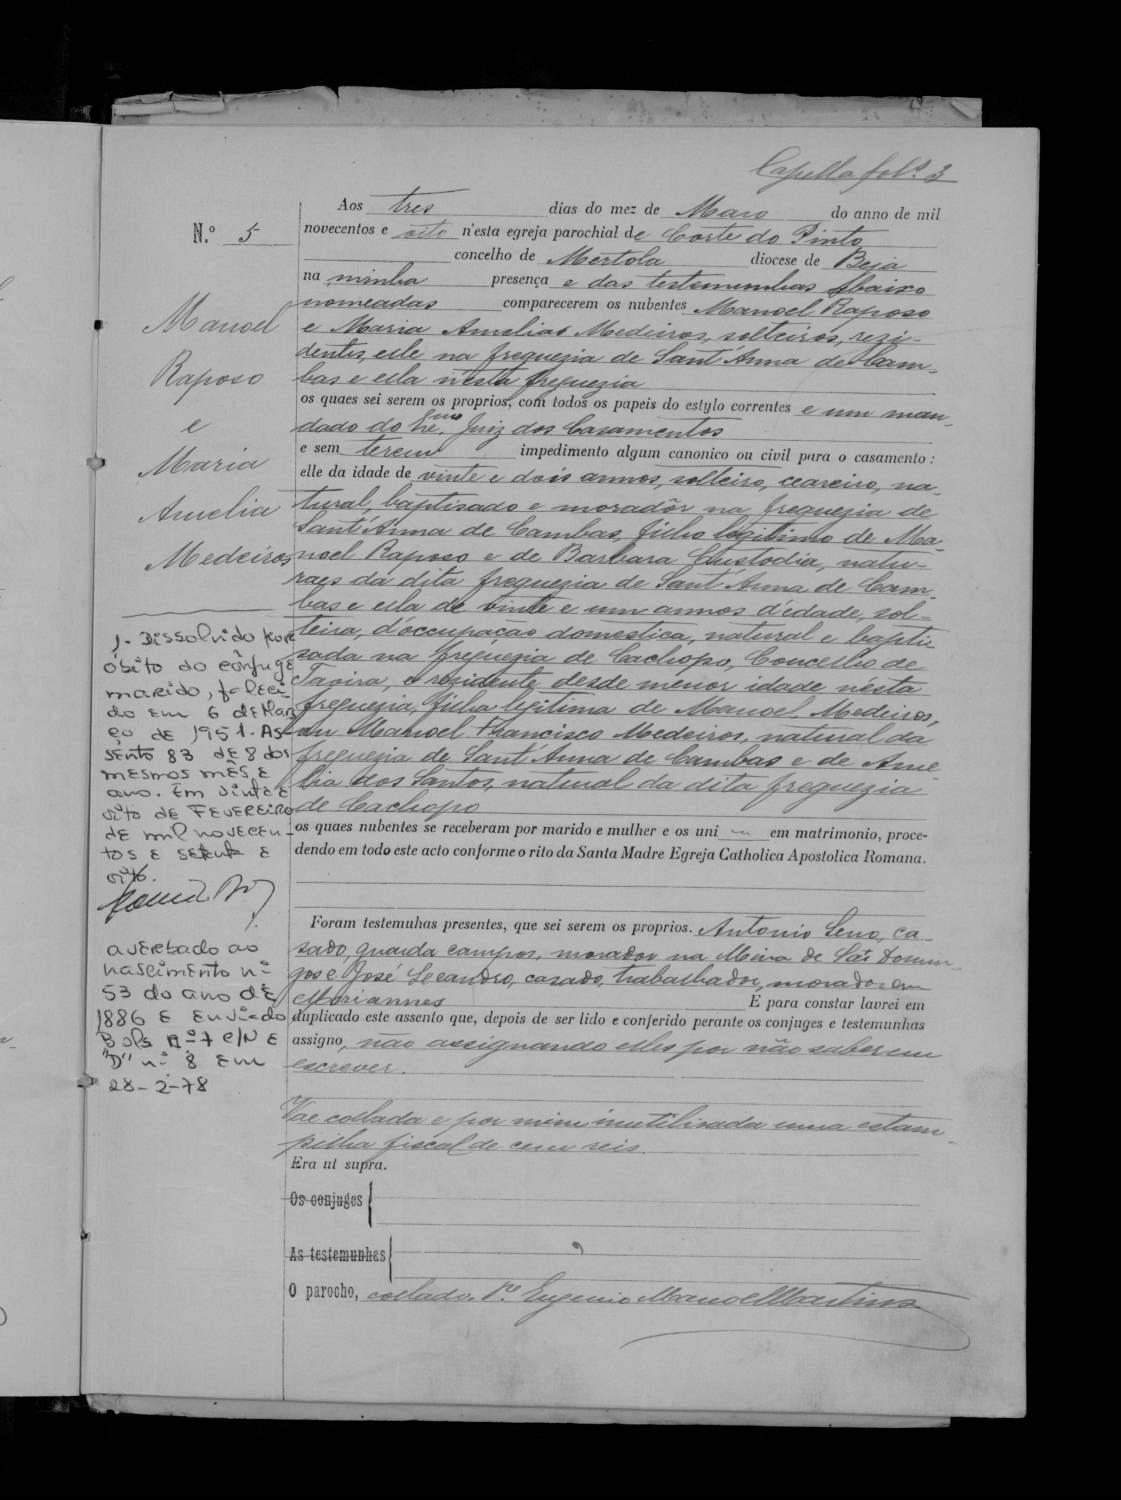 Capella fol.ª 3
N.º 5
Aos tres dias do mez de Maio do anno de mil
novecentos e oito n'esta egreja parochial de Corte do Pinto
concelho de Mertola diocese de Beja
na minha presença e das testemunhas abaixo
nomeadas comparecerem os nubentes Manoel Raposo
e Maria Amelia Medeiros, solteiros, rezi-
dentes, elle na freguezia de Sant'Anna de Cam-
bas e ella nesta freguezia
os quaes sei serem os proprios, com todos os papeis do estylo correntes e um man-
dado do Juiz dos Casamentos
e sem terem impedimento algum canonico ou civil para o casamento:
elle da idade de vinte e dois annos, solteiro, ceareiro, na-
tural, baptisado e moradôr na freguezia de
Sant'Anna de Cambas, filho legitimo de Ma-
noel Raposo e de Barbara Custodia, natu-
raes da dita freguezia de Sant'Anna de Cam-
bas e ella de vinte e um annos d'edade, sol-
teira, d'occupação domestica, natural e bapti-
sada na freguezia de Cachopo, Concelho de
Tavira, e rezidente desde menor idade nésta
freguezia, filha legitima de Manoel Medeiros,
ou Manoel Francisco Medeiros, natural da
freguezia de Sant'Anna de Cambas e de Ame-
lia dos Santos, natural da dita freguezia
de Cachopo
os quaes nubentes se receberam por marido e mulher e os uni em matrimonio, proce-
dendo em todo este acto conforme o rito da Santa Madre Egreja Catholica Apostolica Romana.
Foram testemuhas presentes, que sei serem os proprios. Antonio ca-
sado, guarda campos, morador na Mina de São Domin-
gos e José Leeandro, casado, trabalhador, morador em
Moriannes E para constar lavrei em
duplicado este assento que, depois de ser lido e conferido perante os conjuges e testemunhas
assigno, não assignando elles por não saberem
escrever.
Vae collada e por mim inutilisada uma estam-
pilha fiscal de cem reis.
Era ut supra.
Os conjuges
As testemunhas
O parocho, collado, P.e Eugenio Manoel Martins
Manoel
Raposo
e
Maria
Amelia
Medeiros
1- Dissolvido por
óbito do cônjuge
marido, faleci-
do em 6 de Mar-
ço de 1951. As-
sento 83 de 8 dos
mesmos mês e
ano. Em vinte e
oito de Fevereiro
de mil novecen-
tos e setenta e
oito.
averbado ao
nascimento nº
53 do ano de
1886 e enviado
Bols nº 7 C/N e
"D" nº 8 em
28-2-78